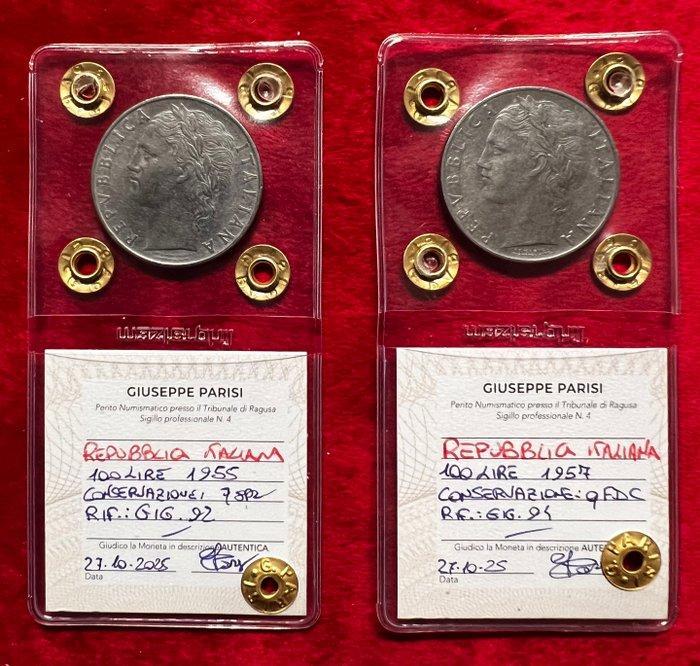 REPVBBLICA ITALIANA
GIUSEPPE PARISI
Perito Numismatico presso il Tribunale di Ragusa
Sigillo professionale N. 4
REPUBBLIA ITALIANA
100 LIRE 1955
CONSERVAZIONE:
RIF.: GIG. 92
Giudico la Moneta in descrizione AUTENTICA
27.10.2025
Data
REPVBBLICA ITALIANA
GIUSEPPE PARISI
Perito Numismatico presso il Tribunale di Ragusa
Sigillo professionale N. 4
REPUBBLIA ITALIANA
100 LIRE 1957
CONSERVAZIONE: qFDC
RIF.: GIG.
Giudico la Moneta in descrizione AUTE
27.10.25
Data